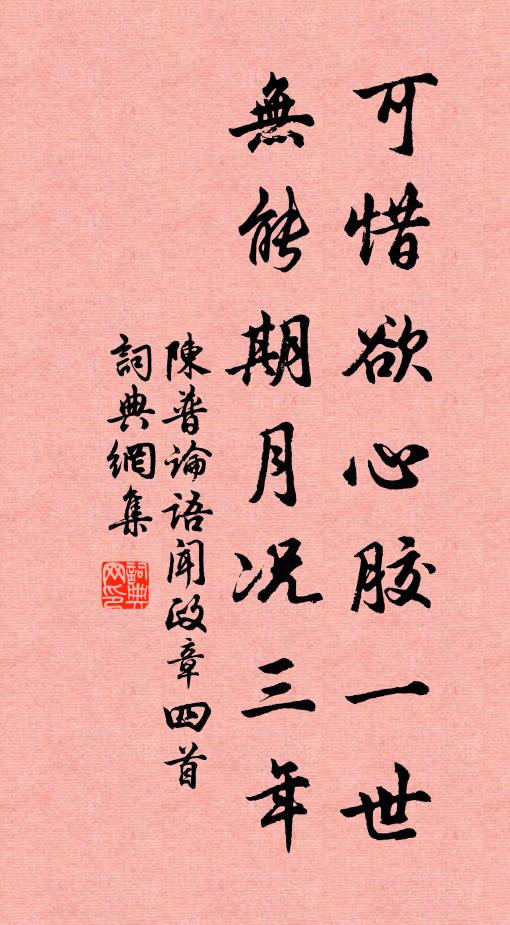 可惜欲心胶一世
無能期月况三年
陳普論語闻政章四首
詞典網集
詞典网印